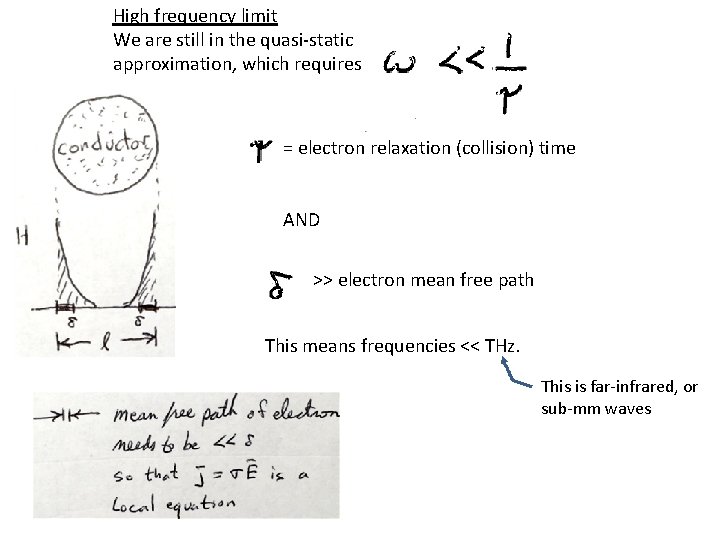 High frequency limit
We are still in the quasi-static
approximation, which requires
ω << 1/τ
conductor
τ = electron relaxation (collision) time
H
AND
δ >> electron mean free path
δ δ
l
This means frequencies << THz.
This is far-infrared, or
sub-mm waves
mean free path of electron
needs to be << δ
so that j̄ = σĒ is a
Local equation